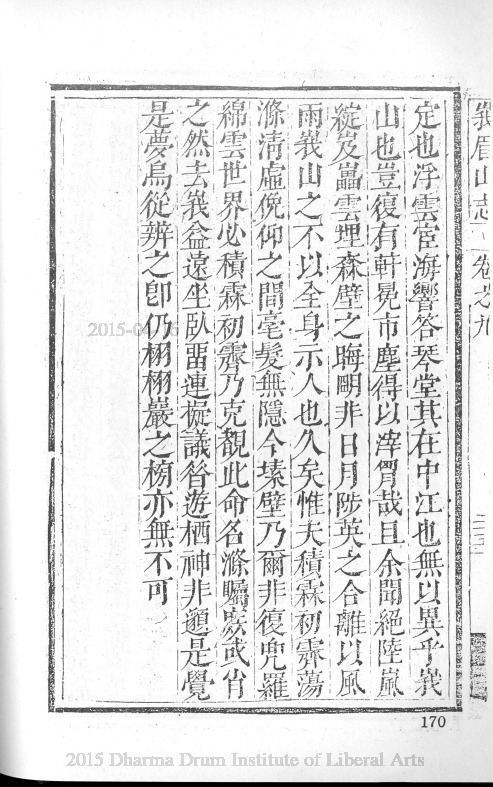 峩眉山志 卷之九
定也浮雲宦海響答琴堂其在中江也無以異乎峩
山也豈復有軒冕市塵得以滓胷哉且余聞絕陸嵐
綻岌巖雲埋森壁之晦明非日月陟英之合離以風
雨峩山之不以全身示人也久矣惟夫積霖初霽蕩
滌清虛俛仰之間毫髮無隱今壁乃爾非復兜羅
綿雲世界必積霖初霽乃克覩此命名滌矚庻或肖
之然去峩益遠坐臥畱連擬議昝遊栖神非遐是覺
是夢烏從辨之卽仍栩栩巖之榜亦無不可
170
2015-0
2015 Dharma Drum Institute of Liberal Arts